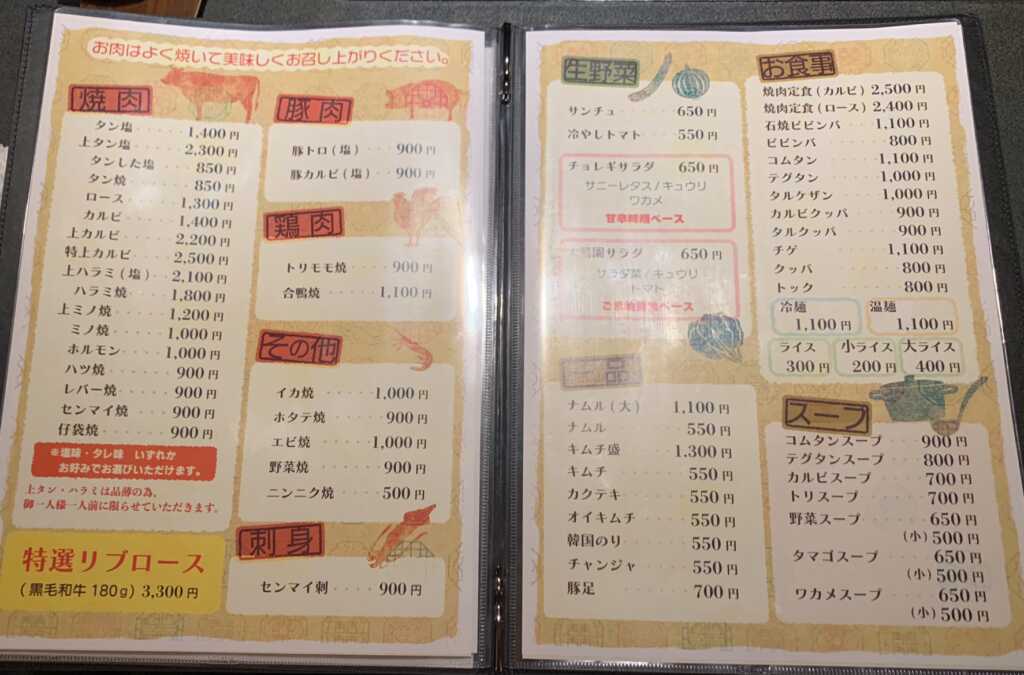 お肉はよく焼いて美味しくお召し上がりください。
焼肉
タン塩‥‥‥1,400円
上タン塩‥‥‥2,300円
タンした塩‥‥‥850円
タン焼‥‥‥850円
ロース‥‥‥1,300円
カルビ‥‥‥1,400円
上カルビ‥‥‥2,200円
特上カルビ‥‥‥2,500円
上ハラミ(塩)‥‥2,100円
ハラミ焼‥‥‥1,800円
上ミノ焼‥‥‥1,200円
ミノ焼‥‥‥1,000円
ホルモン‥‥‥1,000円
ハツ焼‥‥‥900円
レバー焼‥‥‥900円
センマイ焼‥‥‥900円
仔袋焼‥‥‥900円
※塩味・タレ味 いずれか
お好みでお選びいただけます。
上タン・ハラミは品薄の為、
御一人様一人前に限らせていただきます。
特選リブロース
(黒毛和牛180g) 3,300円
豚肉
豚トロ(塩)‥‥900円
豚カルビ(塩)‥‥900円
鶏肉
トリモモ焼‥‥‥900円
合鴨焼‥‥‥1,100円
その他
イカ焼‥‥‥1,000円
ホタテ焼‥‥‥900円
エビ焼‥‥‥1,000円
野菜焼‥‥‥900円
ニンニク焼‥‥‥500円
刺身
センマイ刺‥‥‥900円
生野菜
サンチュ‥‥‥650円
冷やしトマト‥‥‥550円
チョレギサラダ 650円
サニーレタス/キュウリ
ワカメ
甘辛味噌ベース
園サラダ 650円
サラダ菜/キュウリ
トマト
ベース
一品
ナムル(大)‥‥1,100円
ナムル‥‥‥550円
キムチ盛‥‥‥1,300円
キムチ‥‥‥550円
カクテキ‥‥‥550円
オイキムチ‥‥‥550円
韓国のり‥‥‥550円
チャンジャ‥‥‥550円
豚足‥‥‥700円
お食事
焼肉定食(カルビ) 2,500円
焼肉定食(ロース) 2,400円
石焼ビビンバ‥‥1,100円
ビビンバ‥‥‥800円
コムタン‥‥‥1,100円
テグタン‥‥‥1,000円
タルケザン‥‥‥1,000円
カルビクッパ‥‥‥900円
タルクッパ‥‥‥900円
チゲ‥‥‥1,100円
クッパ‥‥‥800円
トック‥‥‥800円
冷麺
1,100円
温麺
1,100円
ライス
300円
小ライス
200円
大ライス
400円
スープ
コムタンスープ‥‥900円
テグタンスープ‥‥800円
カルビスープ‥‥700円
トリスープ‥‥‥700円
野菜スープ‥‥‥650円
(小)500円
タマゴスープ‥‥650円
(小)500円
ワカメスープ‥‥650円
(小)500円